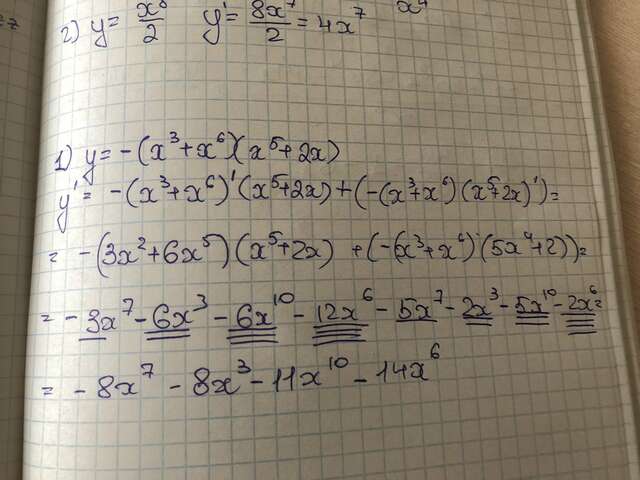 2) y = x⁸/2   y' = 8x⁷/2 = 4x⁷
1) y = -(x³+x⁶)(x⁵+2x)
y' = -(x³+x⁶)'(x⁵+2x)+(-(x³+x⁶)(x⁵+2x)')=
= -(3x²+6x⁵)(x⁵+2x) +(-(x³+x⁶)(5x⁴+2))=
= -3x⁷-6x³-6x¹⁰-12x⁶-5x⁷-2x³-5x¹⁰-2x⁶=
= -8x⁷-8x³-11x¹⁰-14x⁶